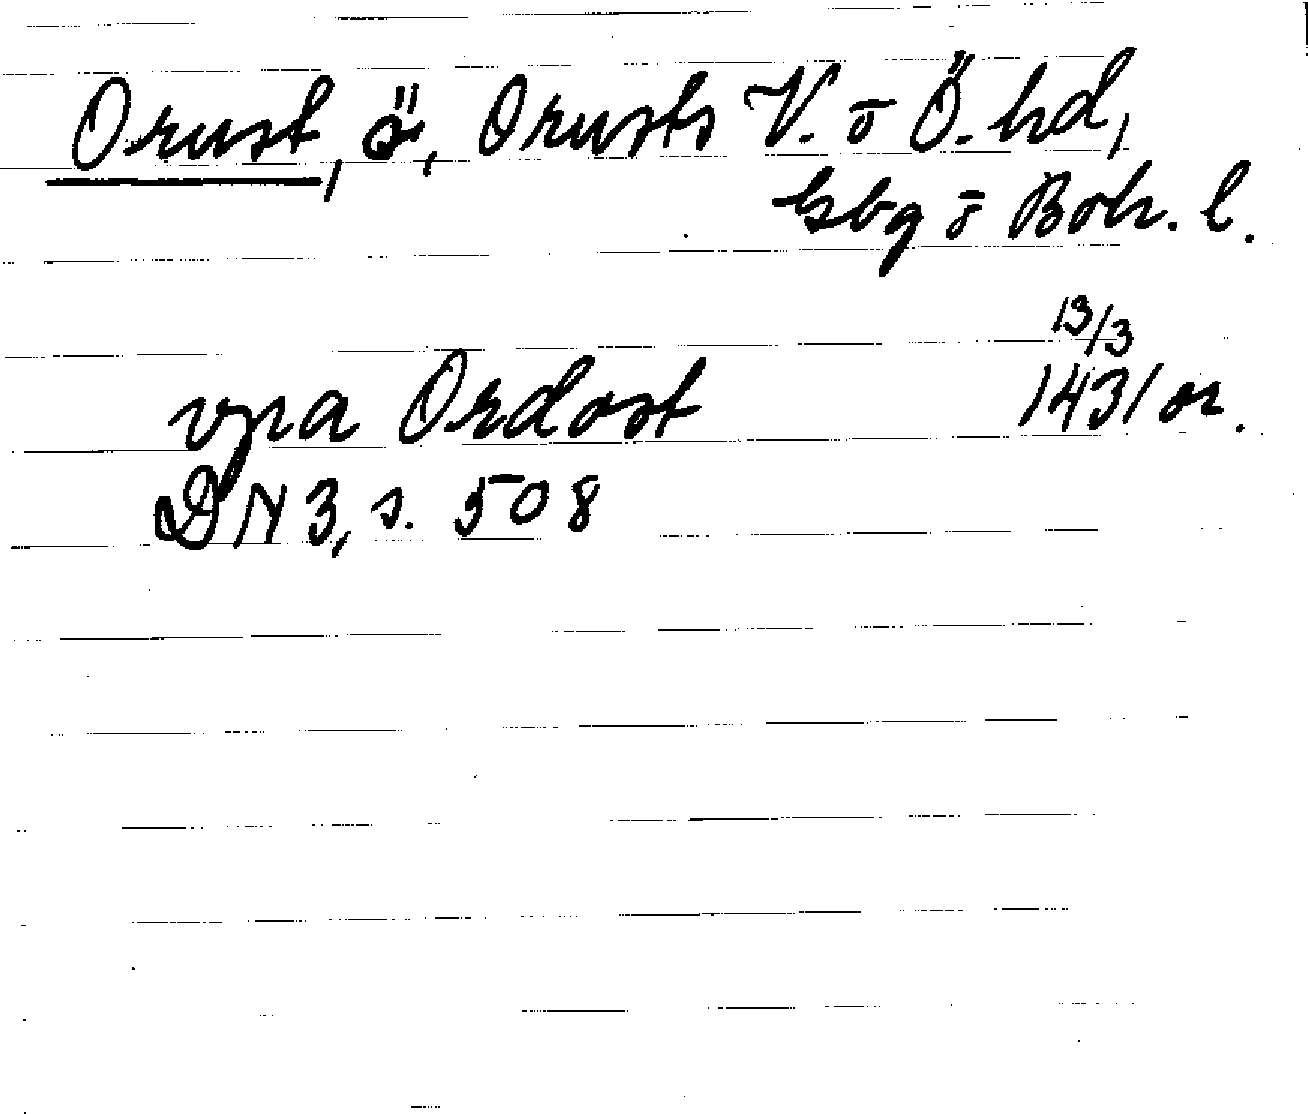 Orust, ö, Orusts V. o Ö. hd,
Gbg o Boh. l.
13/3
vpa Ordost 1431 or.
DN 3, s. 508